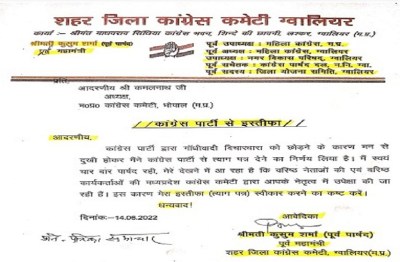 शहर जिला कांग्रेस कमेटी ग्वालियर
कार्या :- श्रीमंत माधवराव सिंधिया कांग्रेस भवन, शिन्दे की छावनी, लश्कर, ग्वालियर (म.प्र.)
श्रीमती कुसुम शर्मा (पूर्व पार्षद)
पूर्व महामंत्री
पूर्व उपाध्यक्ष : महिला कांग्रेस, म.प्र.
पूर्व अध्यक्ष : महिला कांग्रेस, ग्वालियर
उपाध्यक्ष : नगर विकास परिषद, ग्वालियर
पूर्व सचेतक : कांग्रेस पार्षद दल, न.नि. ग्वा.
पूर्व सदस्य : जिला योजना समिति, ग्वालियर
प्रति,
आदरणीय श्री कमलनाथ जी
अध्यक्ष,
म०प्र० कांग्रेस कमेटी, भोपाल (म.प्र.)
कांग्रेस पार्टी से इस्तीफा
आदरणीय,
कांग्रेस पार्टी द्वारा गाँधीवादी विचारधारा को छोड़ने के कारण मन से
दुखी होकर मैंने कांग्रेस पार्टी से त्याग पत्र देने का निर्णय लिया है। मैं स्वयं
चार बार पार्षद रही, मेरे देखने में आ रहा है कि वरिष्ठ नेताओं की एवं वरिष्ठ
कार्यकर्ताओं की मध्यप्रदेश कांग्रेस कमेटी द्वारा आपके नेतृत्व में उपेक्षा की जा
रही है। इस कारण मेरा इस्तीफा (त्याग पत्र) स्वीकार करने का कष्ट करें।
धन्यवाद!
दिनांक:-14.06.2022
आवेदिका
श्रीमती कुसुम शर्मा (पूर्व पार्षद)
पूर्व महामंत्री
शहर जिला कांग्रेस कमेटी, ग्वालियर (म.प्र.)